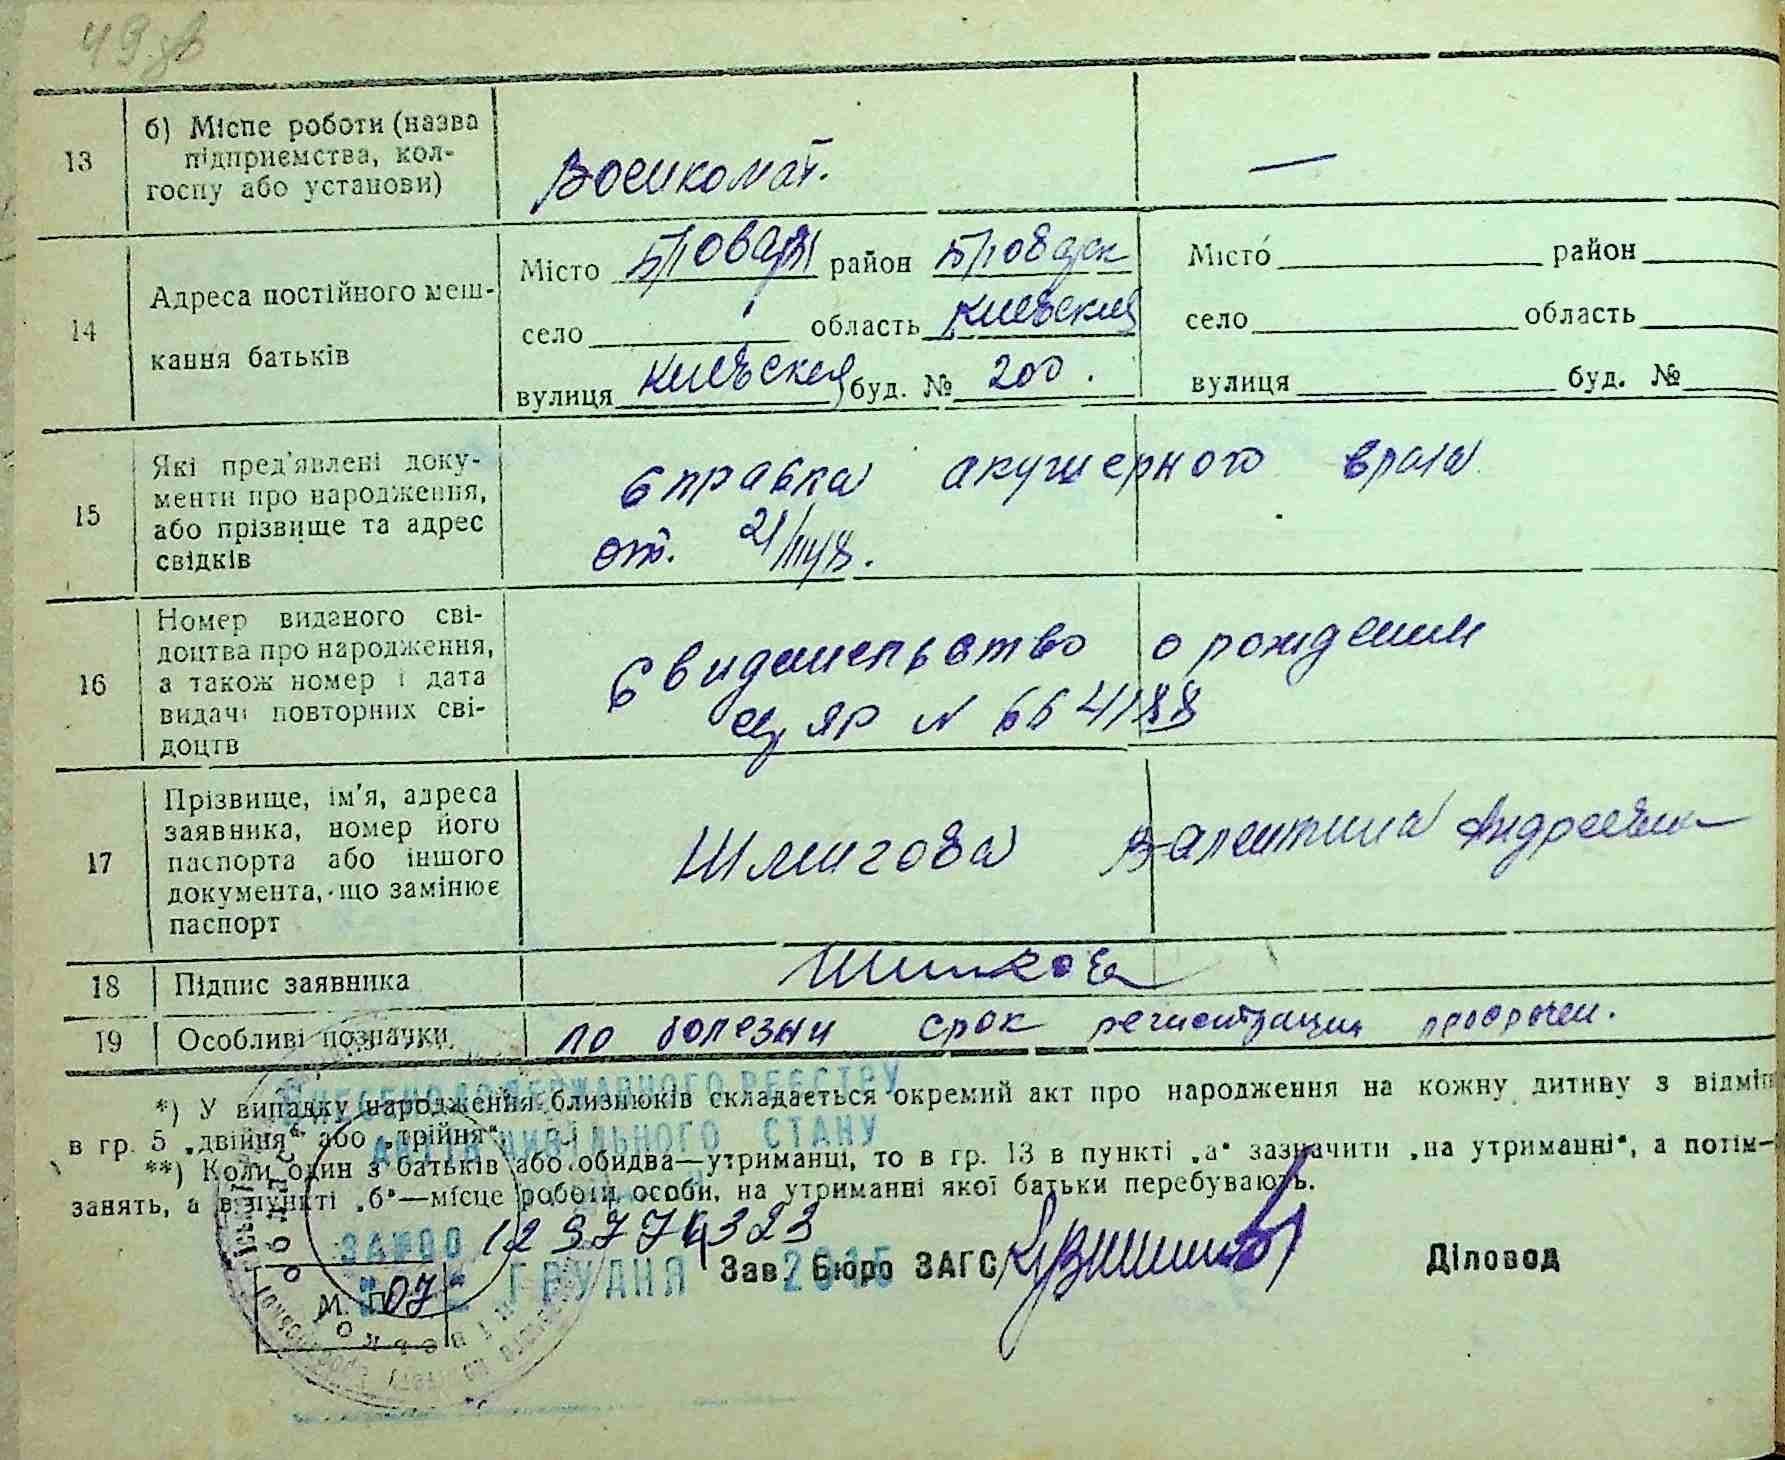 49 зв
13 б) Місце роботи (назва підприємства, кол-госпу або установи) Военкомат. —
14 Адреса постійного меш-кання батьків
Місто Бровари район Броварск Місто район
село область Киевская село область
вулиця Киевская буд. № 200. вулиця буд. №
15 Які пред'явлені доку-
менти про народження,
або прізвище та адрес
свідків
справка акушерного врача
от. 21/III 48.
16 Номер виданого сві-
доцтва про народження,
а також номер і дата
видачі повторних сві-
доцтв
Свидетельство о рождении
ЯР N 664188
17 Прізвище, ім'я, адреса
заявника, номер його
паспорта або іншого
документа, що замінює
паспорт
Валентина Андреевна
18 Підпис заявника
19 Особливі позначки по болезни срок регистрации просрочен.
*) У випадку народження близнюків складається окремий акт про народження на кожну дитину з відміт
в гр. 5 „двійня“ або „трійня“.
**) Коли один з батьків або обидва—утриманці, то в гр. 13 в пункті „а“ зазначити „на утриманні“, а потім—
занять, а в пункті „б“—місце роботи особи, на утриманні якої батьки перебувають.
ВНЕСЕНО ДО ДЕРЖАВНОГО РЕЄСТРУ
АКТІВ ЦИВІЛЬНОГО СТАНУ
ЗА №00 123774323
"07" ГРУДНЯ 2015
М. П.
Зав. Бюро ЗАГС Діловод